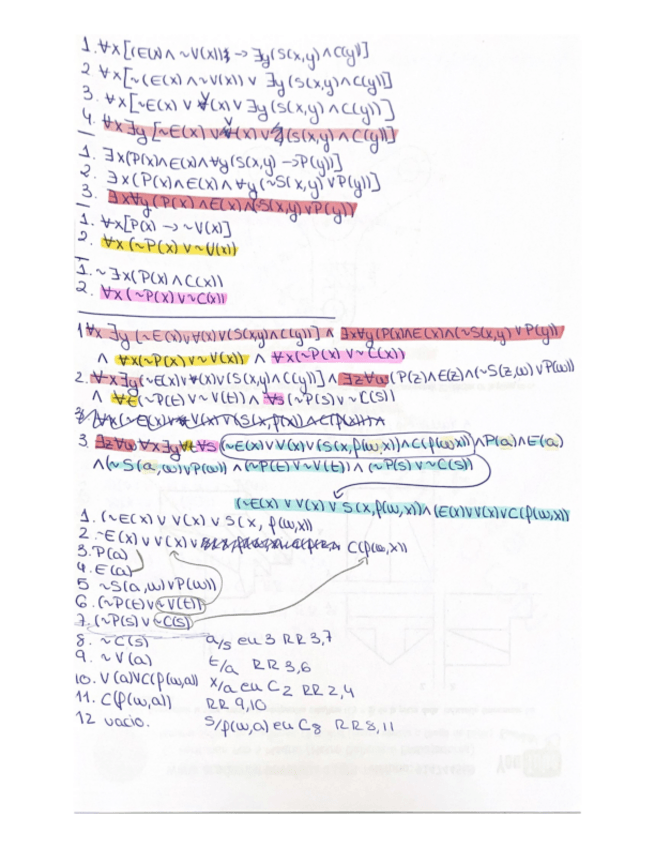 1. ∀x[(E(x) ∧ ~V(x)) → ∃y(S(x,y) ∧ C(y))]
2 ∀x[~(E(x) ∧ ~V(x)) ∨ ∃y(S(x,y) ∧ C(y))]
3. ∀x[~E(x) ∨ V(x) ∨ ∃y(S(x,y) ∧ C(y))]
4. ∀x∃y[~E(x) ∨ V(x) ∨ (S(x,y) ∧ C(y))]
1. ∃x(P(x) ∧ E(x) ∧ ∀y(S(x,y) → P(y))]
2. ∃x(P(x) ∧ E(x) ∧ ∀y(~S(x,y) ∨ P(y))]
3. ∃x∀y(P(x) ∧ E(x) ∧ (S(x,y) ∨ P(y))
1. ∀x[P(x) → ~V(x)]
2. ∀x(~P(x) ∨ ~V(x))
1. ~∃x(P(x) ∧ C(x))
2. ∀x(~P(x) ∨ ~C(x))
1 ∀x ∃y [~E(x) ∨ V(x) ∨ (S(x,y) ∧ C(y))] ∧ ∃x∀y(P(x) ∧ E(x) ∧ (~S(x,y) ∨ P(y))
∧ ∀x(~P(x) ∨ ~V(x)) ∧ ∀x(~P(x) ∨ ~C(x))
2. ∀x∃y(~E(x) ∨ V(x) ∨ (S(x,y) ∧ C(y))] ∧ ∃z∀w(P(z) ∧ E(z) ∧ (~S(z,w) ∨ P(w))
∧ ∀t(~P(t) ∨ ~V(t)) ∧ ∀s(~P(s) ∨ ~C(s))
3. ∃z∀w∀x∃y∀t∀s (~E(x) ∨ V(x) ∨ (S(x,f(w,x)) ∧ C(f(w,x))) ∧ P(a) ∧ E(a)
∧ (~S(a,w) ∨ P(w)) ∧ (~P(t) ∨ ~V(t)) ∧ (~P(s) ∨ ~C(s))
(~E(x) ∨ V(x) ∨ S(x,f(w,x)) ∧ (E(x) ∨ V(x) ∨ C(f(w,x))
1. (~E(x) ∨ V(x) ∨ S(x, f(w,x))
2. ~E(x) ∨ V(x) ∨ C(f(w,x))
3. P(a)
4. E(a)
5 ~S(a,w) ∨ P(w))
6. (~P(t) ∨ ~V(t))
7. (~P(s) ∨ ~C(s))
8. ~C(s) a/s en 3 RR 3,7
9. ~V(a) t/a RR 3,6
10. V(a) ∨ C(f(w,a)) x/a en C2 RR 2,4
11. C(f(w,a)) RR 9,10
12 vacio. S/f(w,a) en C8 RR 8,11